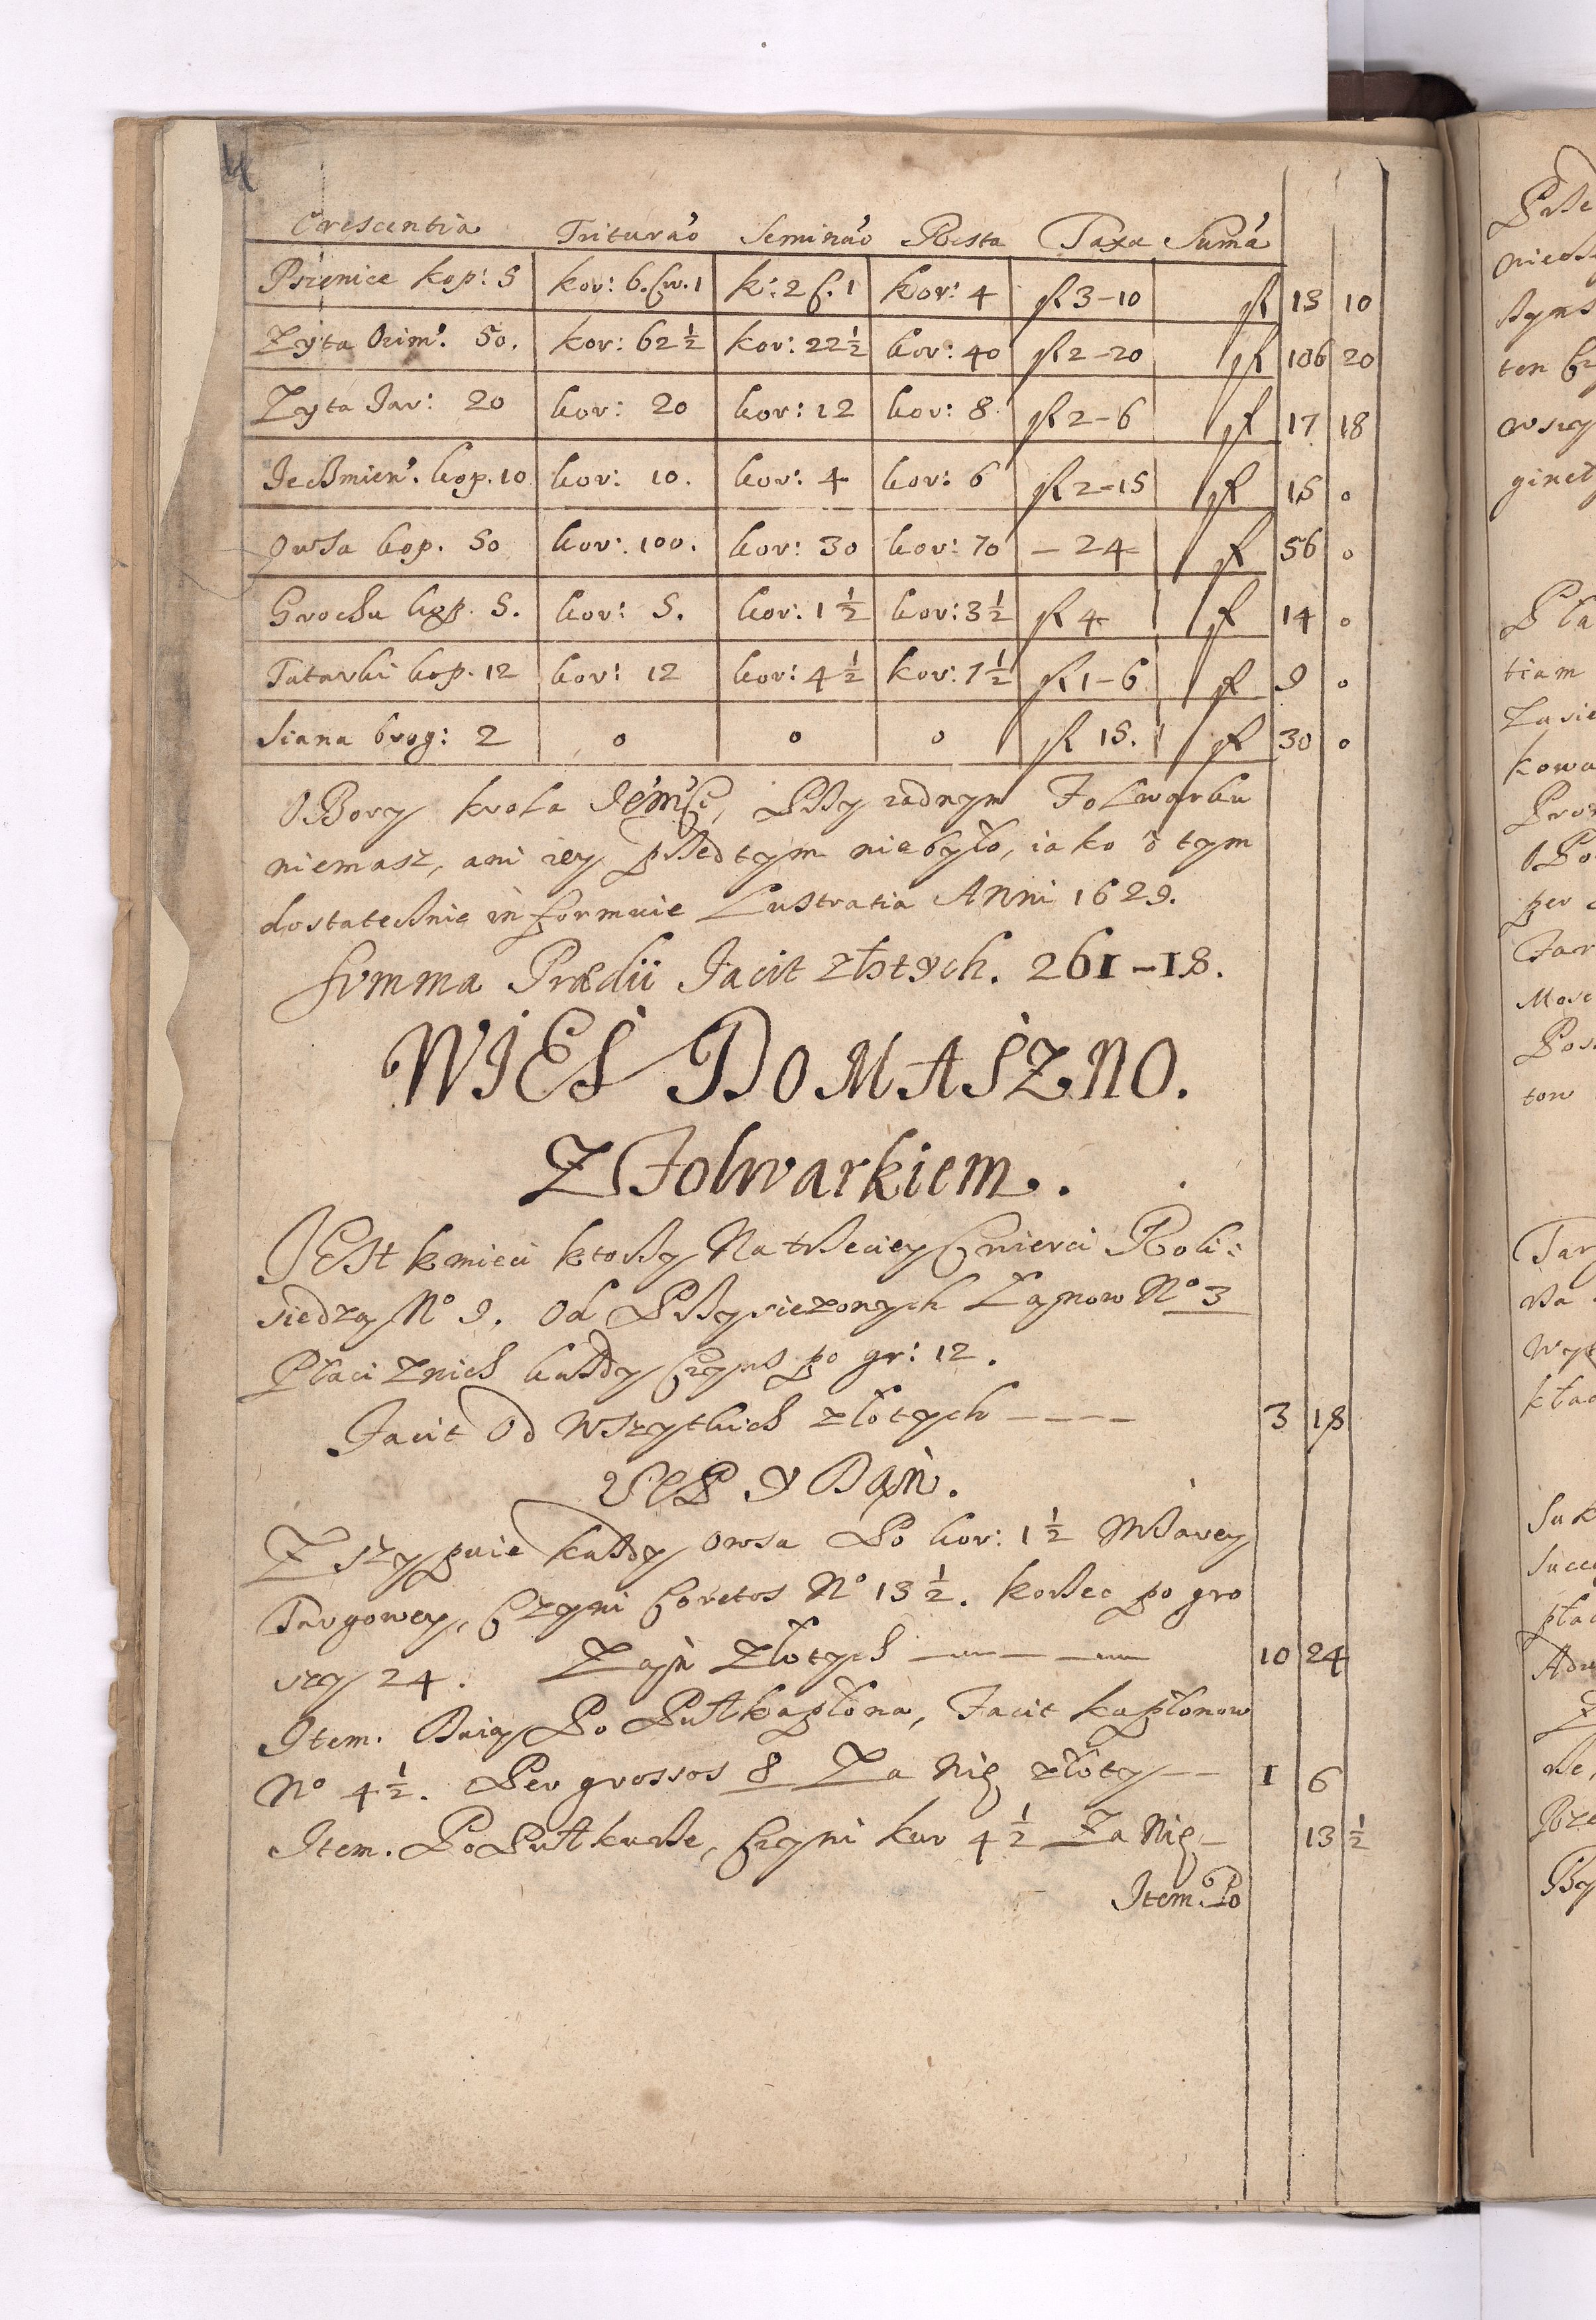 Crescentia Triturao Seminao Resta Taxa Suma
Pszenice kop: 5 kor: 6. ćw. 1 k: 2 ć. 1 kor: 4 fl 3–10 fl 13 10
Zyta Ozim: 50. kor: 62 ½ kor: 22 ½ kor: 40 fl 2–20 fl 106 20
Zyta Jar: 20 kor: 20 kor: 12 kor: 8 fl 2–6 fl 17 18
Jeczmien: kop. 10 kor: 10. kor: 4 kor: 6 fl 2–15 fl 15 0
Owsa kop. 50 kor: 100. kor: 30 kor: 70 – 24 fl 56 0
Grochu kop. 5. kor: 5. kor: 1 ½ kor: 3 ½ fl 4 fl 14 0
Tatarki kop. 12 kor: 12 kor: 4 ½ kor: 7 ½ fl 1–6 fl 9 0
Siana brog: 2 0 0 0 fl 15. fl 30 0
OBory krola przy zadnym Folwarku
niemasz, ani iey przedtym niebyło, iako o tym
dostatecznie informuie Lustratia Anni 1629.
Summa Prædii Facit złotych. 261–18.
WIES DOMASZNO.
Z Folwarkiem.
JEst kmieci ktorzy Na trzeciey Cwierci Roli
siedzą No 9. Od Przysiezonych Łanow No 3
Płaci Znich każdy Czynsz po gr: 12.
Facit Od Wszytkich złotych ---- 3 18
OSEP Y DAŃ.
Zszypuie każdy Owsa Po kor: 1 ½ Miarey
Targowey, Czyni Coretos No 13 ½. korzec po gro
szy 24. Zań Złotych ---- 10 24
Item. Daią Po Puł kapłona, Facit kapłonow
No 4 ½. Per grossos 8 Za Nię złoty -- 1 6
Item. Po Puł kurze, Czyni kur 4 ½ Za Nię – 13 ½
Item Po